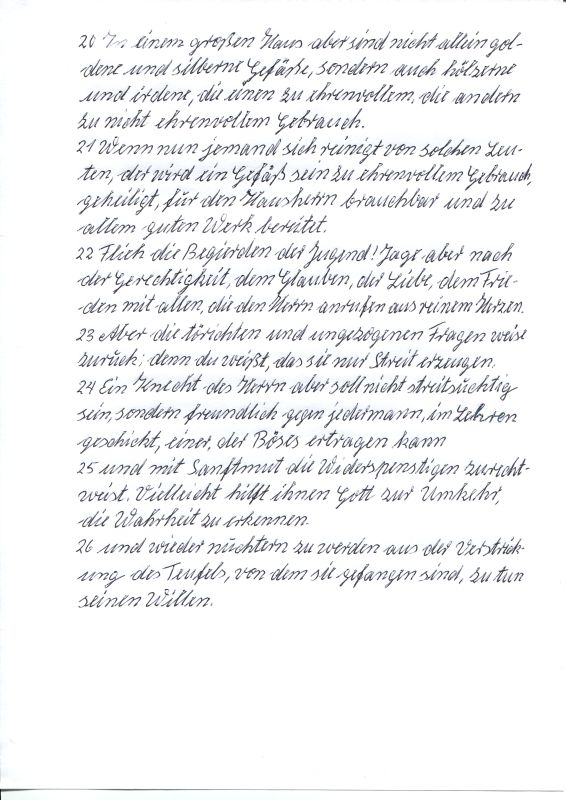 20 In einem großen Haus aber sind nicht allein gol-
dene und silberne Gefäße, sondern auch hölzerne
und irdene, die einen zu ehrenvollem, die andern
zu nicht ehrenvollem Gebrauch.
21 Wenn nun jemand sich reinigt von solchen Leu-
ten, der wird ein Gefäß sein zu ehrenvollem Gebrauch,
geheiligt, für den Hausherrn brauchbar und zu
allem guten Werk bereitet.
22 Flieh die Begierden der Jugend! Jage aber nach
der Gerechtigkeit, dem Glauben, der Liebe, dem Frie-
den mit allen, die den Herrn anrufen aus reinem Herzen.
23 Aber die törichten und ungezogenen Fragen weise
zurück; denn du weißt, das sie nur Streit erzeugen.
24 Ein Knecht des Herrn aber soll nicht streitsüchtig
sein, sondern freundlich gegen jedermann, im Lehren
geschickt, einer, der Böses ertragen kann
25 und mit Sanftmut die Widerspenstigen zurecht-
weist. Vielleicht hilft ihnen Gott zur Umkehr,
die Wahrheit zu erkennen
26 und wieder nüchtern zu werden aus der Verstrick-
ung des Teufels, von dem sie gefangen sind, zu tun
seinen Willen.